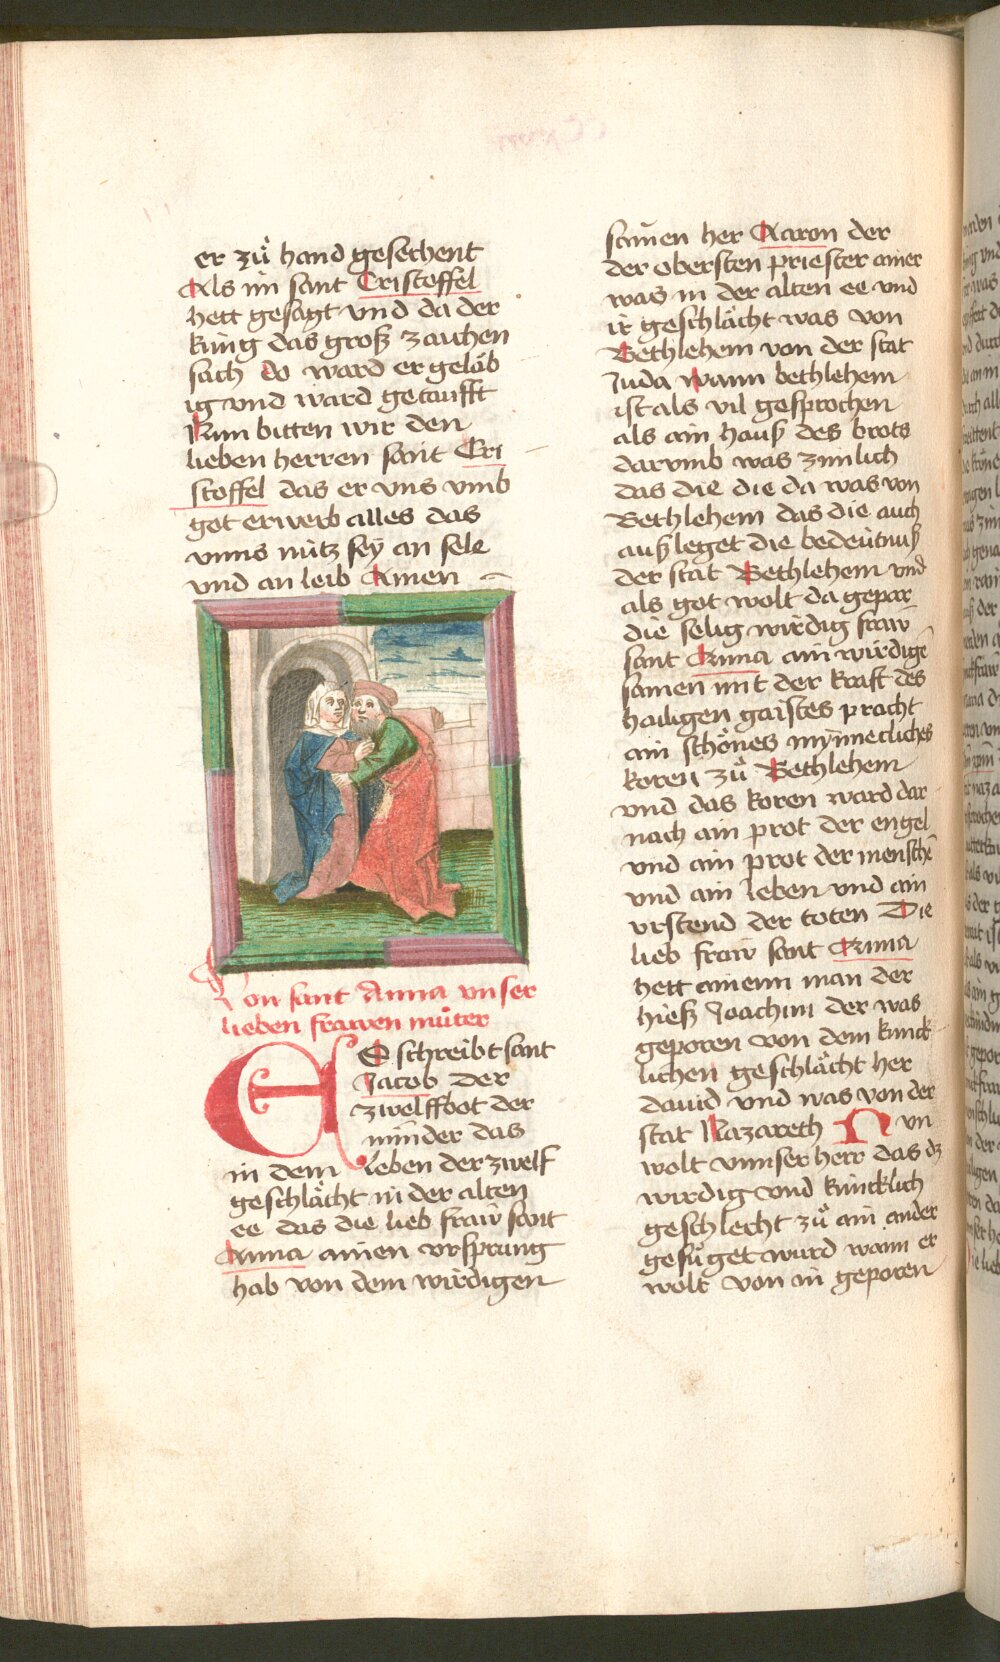 er zů hand gesehent
Als im sant Cristoffel
hett gesagt vnd da der
kung das groß zaichen
sach do ward er geläb
ig vnd ward getaufft
Nun bitten wir den
lieben herren sant Cri
stoffel das er vns vmb
got erwerb alles das
vnns nütz seÿ an sele
vnd an leib Amen
Von sant Anna vnser
lieben frawen můter
ES schreibt sant
Jacob der
zwelffbot der
minder das
in dem leben der zwelf
geschlächt in der alten
ee das die lieb fraw sant
Anna ainen vrsprung
hab von dem wirdigen
samen her Aaron der
der obersten priester ainer
was in der alten ee vnd
ir geschlächt was von
Bethlehem von der stat
Juda wann bethlehem
ist als vil gesprochen
als ain hauß des brots
darvmb was zimlich
das die die da was von
Bethlehem das die auch
außleget die bedeütnuß
der stat Bethlehem vnd
als got wolt da gepar
die selig wirdig fraw
sant Anna ain wirdigē
samen mit der kraft des
hailigen gaistes pracht
ain schönes mynnecliches
koren zů Bethlehem
vnd das koren ward dar
nach ain prot der engel
vnd ain prot der menschē
vnd ain leben vnd ain
vrstend der toten Die
lieb fraw sant Anna
hett ainenn man der
hieß Joachim der was
geporen von dem künck
lichen geschlächt her
dauid vnd was von der
stat Nazareth Nvn
wolt vnnser herr das dz
wirdig vnd küncklich
geschlecht zů ain ander
gefůget wurd wann er
wolt von in geporen